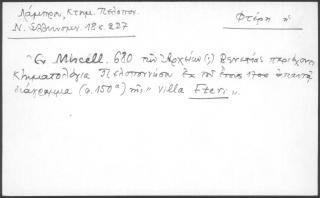 Λάμπρου, Κτημ. Πελοπον.
Ν. Ἑλληνομν. 18 σ 227
Φτέρη ἡ
Ὁ Miscell. 680 τῶν Ἀρχείων (;) Βενετίας περιέχων
κτηματολόγια Πελοποννήσου ἐκ τοῦ ἔτους 1700 ἀπαντᾷ
διάγραμμα (φ. 150α) τῆς "Villa Fteri".